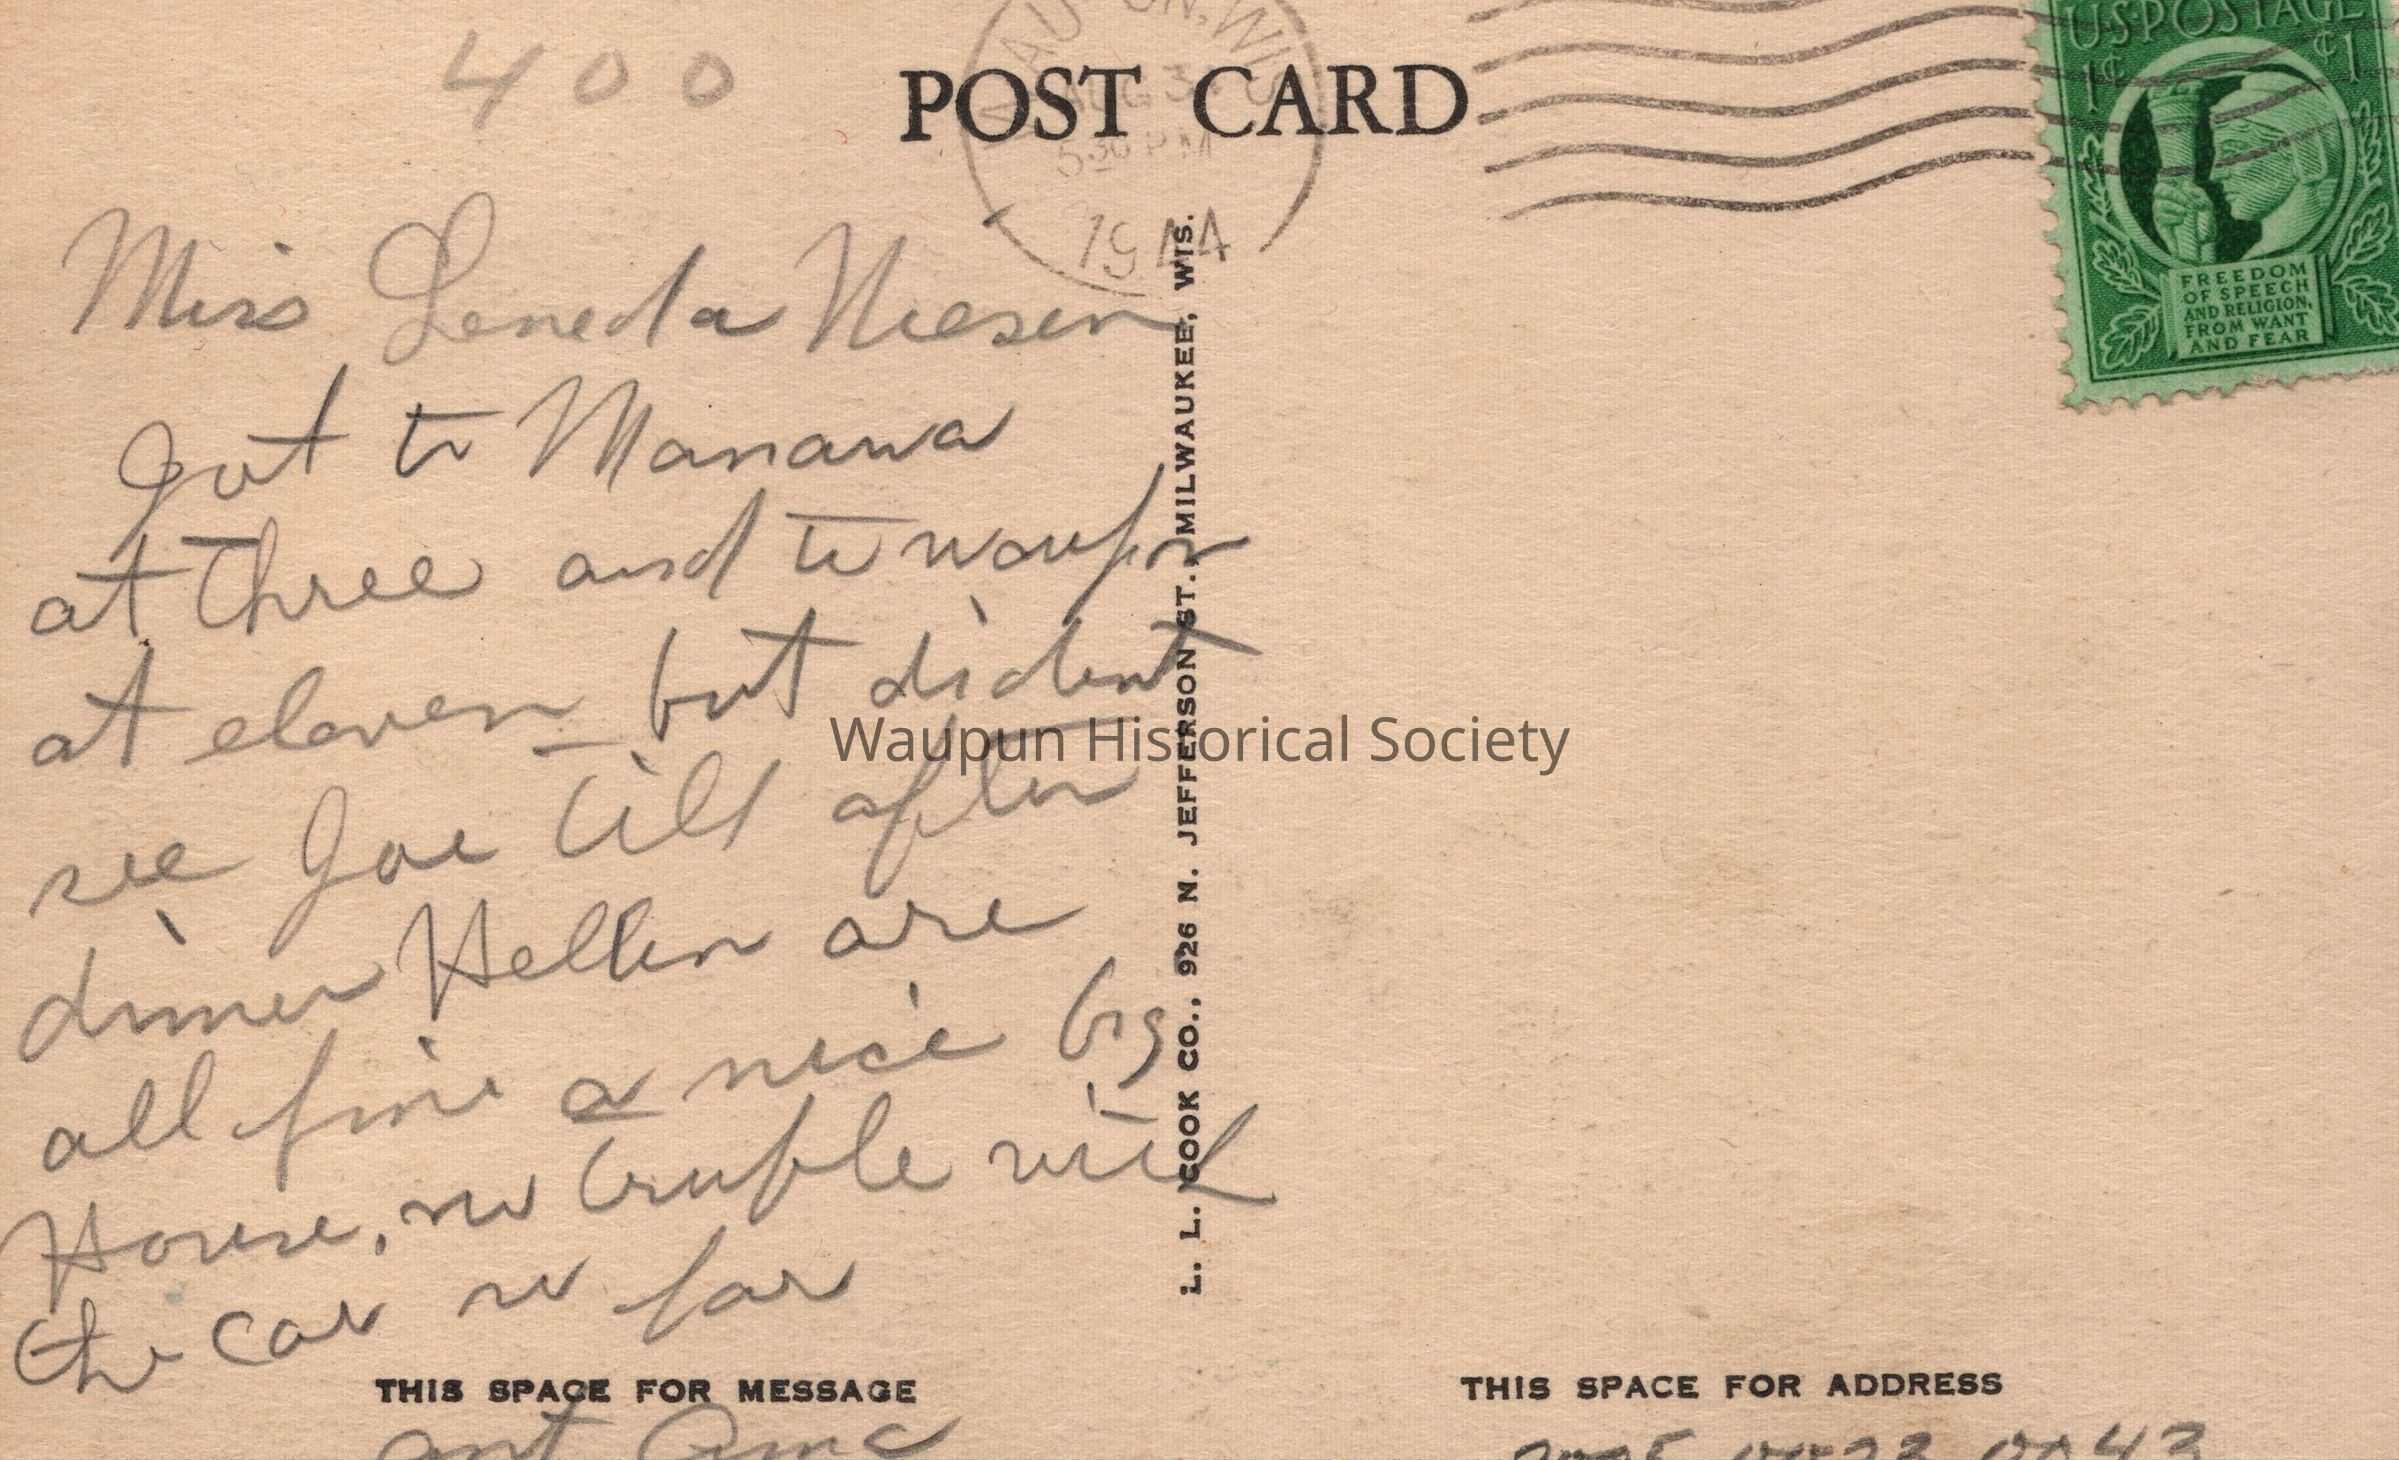 400
WAUPUN, WIS.
AUG 3
5:30 PM
1944
POST CARD
US POSTAGE
1¢ ¢1
FREEDOM
OF SPEECH
AND RELIGION,
FROM WANT
AND FEAR
Miss Leneda Niesen
Got to Manawa
at three and to waupon
at eleven but dident
see Joe till after
dinner Hellen are
all fine a nice big
House, no truble with
the car so far
ant
L. L. COOK CO., 926 N. JEFFERSON ST., MILWAUKEE, WIS.
Waupun Historical Society
THIS SPACE FOR MESSAGE
THIS SPACE FOR ADDRESS
2005 0023 0043